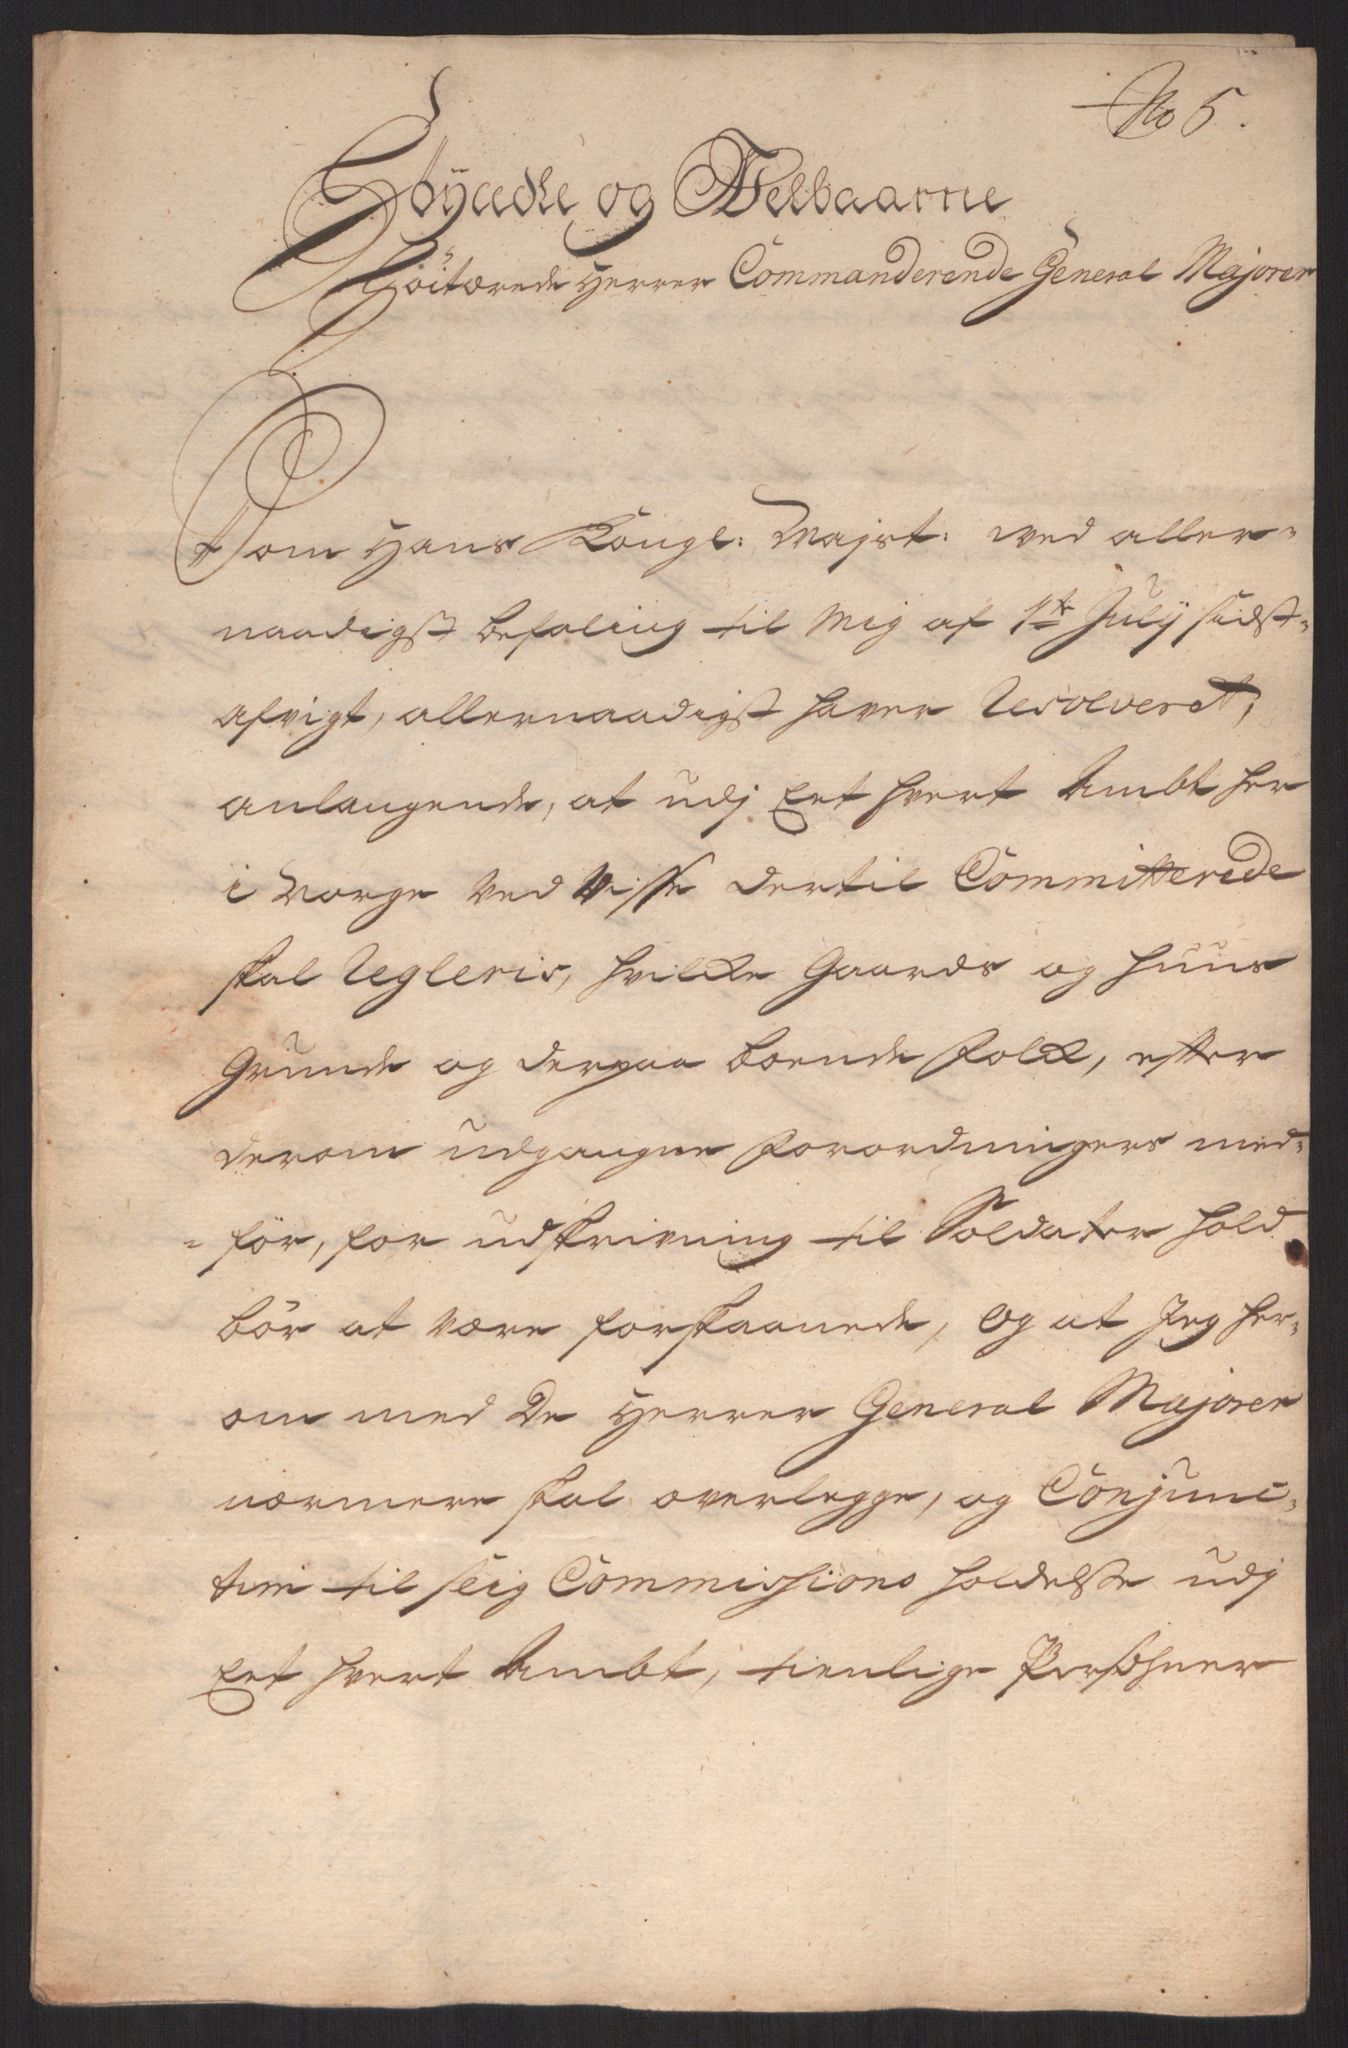 No 5.
Höyædle og Velbaarne
Höitærede Herrer Commanderende General Majorer
Som Hans Kongl: Majst: ved aller-
naadigst befaling til Mig af 1ste Julij sidst-
afvigt, allernaadigst haver Resolveret,
anlangende, at udj Eet hvert Ambt her
i Norge ved visse dertil Committerede
skal Regleris, hvilke Gaards og Huus
Grunde og derpaa boende Folk, efter
derom udgangne Forordningers med-
för, for udskrivning til Soldater hold
bör at være forskaanede, Og at Jeg her-
om med De Herrer General Majorer
nærmere skal overlegge, og Conjunc-
tim til slig Commissions holdelse udj
Eet hvert Ambt, tienlige Persohner